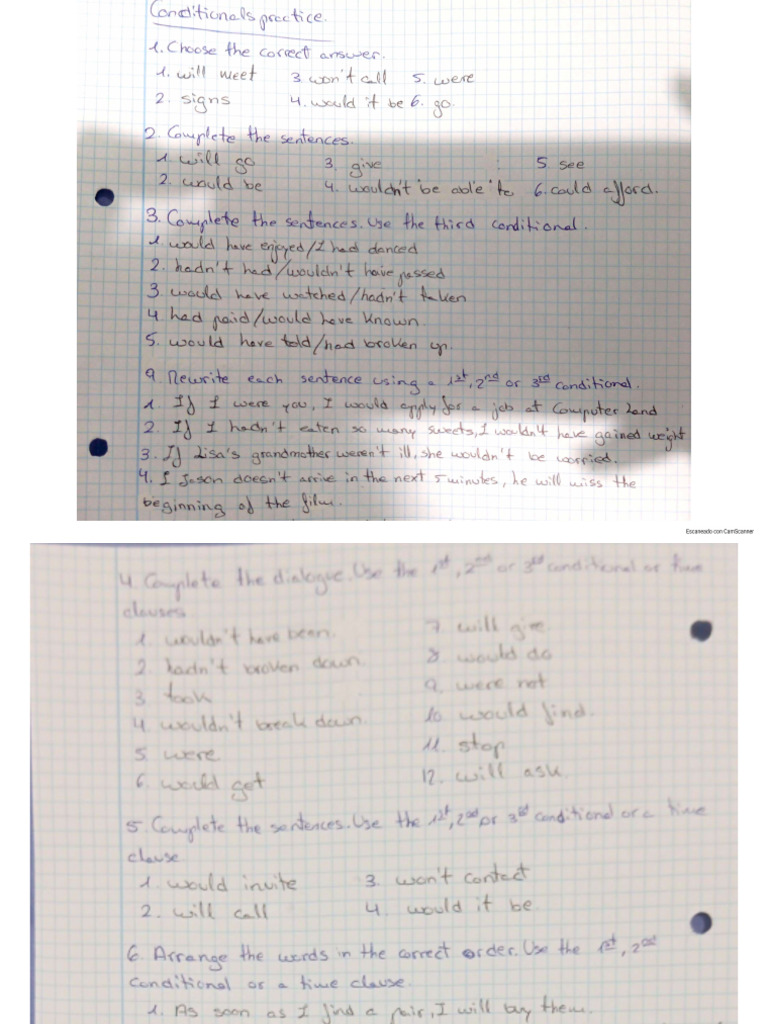 Conditionals practice.
1. Choose the correct answer.
1. will meet 3. won't call 5. were
2. signs 4. would it be 6. go.
2. Complete the sentences.
1. will go 3. give 5. see
2. would be 4. wouldn't be able to 6. could afford.
3. Complete the sentences. Use the third conditional.
1. would have enjoyed/I had danced
2. hadn't had/wouldn't have passed
3. would have watched/hadn't taken
4 had paid/would have known.
5. would have told/had broken up.
9. Rewrite each sentence using a 1st, 2nd or 3rd conditional.
1. If I were you, I would apply for a job at Computer Land
2. If I hadn't eaten so many sweets, I wouldn't have gained weight
3. If Lisa's grandmother weren't ill, she wouldn't be worried.
4. I Jason doesn't arrive in the next 5 minutes, he will miss the
beginning of the film.
Escaneado con CamScanner
4 Complete the dialogue. Use the 1st, 2nd or 3rd conditional or time
clauses
1. wouldn't have been. 7 will give
2. hadn't broken down. 8 would do
3 took 9 were not
4 wouldn't break down. 10 would find.
5 were 11 stop
6. would get 12. will ask.
5. Complete the sentences. Use the 1st, 2nd or 3rd conditional or a time
clause
1 would invite 3. won't contact
2. will call 4. would it be
6. Arrange the words in the correct order. Use the 1st, 2nd
conditional or a time clause.
1. As soon as I find a pair, I will buy them.